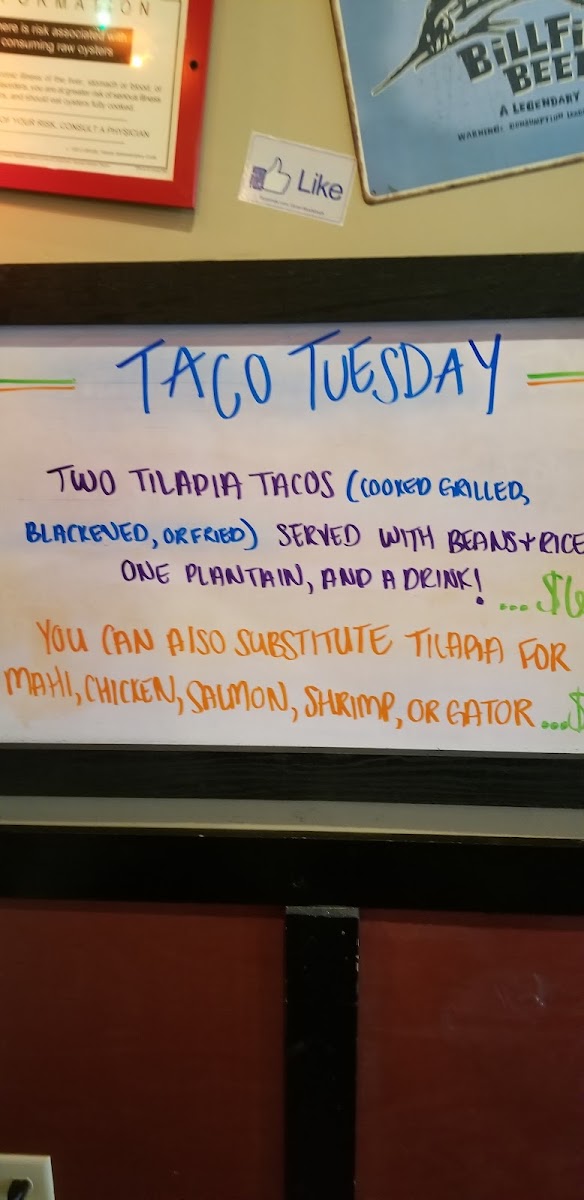 FORMATION
here is risk associated with
consuming raw oysters
OF YOUR RISK, CONSULT A PHYSICIAN
Like
BILLFI
BEE
A LEGENDARY
WARNING:
TACO TUESDAY
TWO TILAPIA TACOS (COOKED GRILLED,
BLACKENED, OR FRIED) SERVED WITH BEANS+RICE
ONE PLANTAIN, AND A DRINK!
... $6
YOU CAN ALSO SUBSTITUTE TILAPIA FOR
MAHI, CHICKEN, SALMON, SHRIMP, OR GATOR ...$